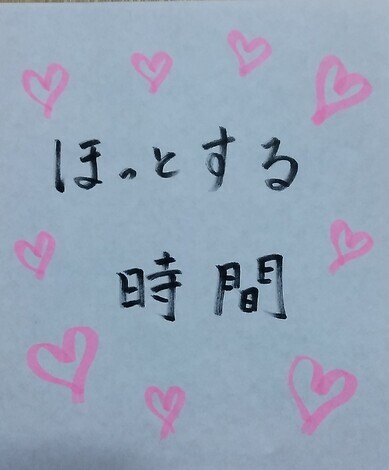 ほっとする
時間